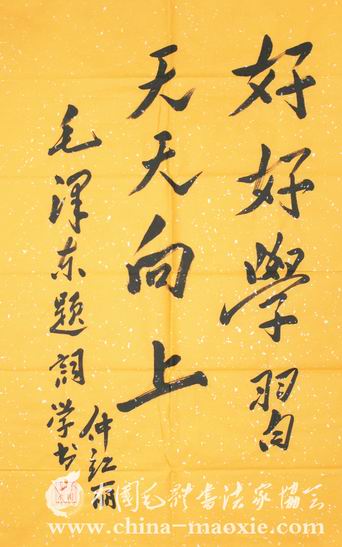 好好學習
天天向上
毛澤东题詞学书
仲紅丽
中国毛体书法家協会
www.china-maoxie.com